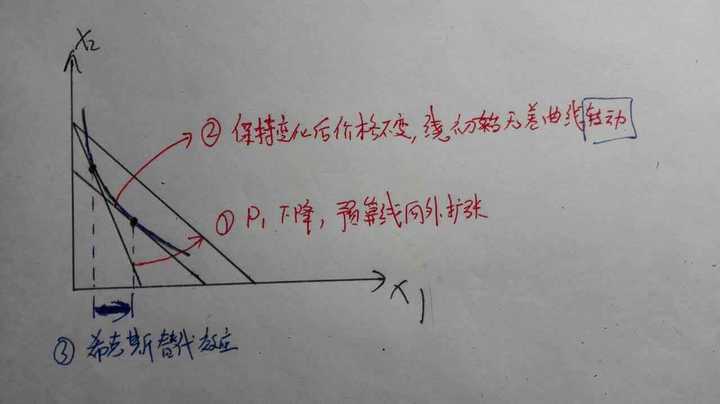 x₂
② 保持变化后价格不变,绕初始无差曲线转动
① P₁ 下降,预算线向外扩张
x₁
③ 希克斯替代效应